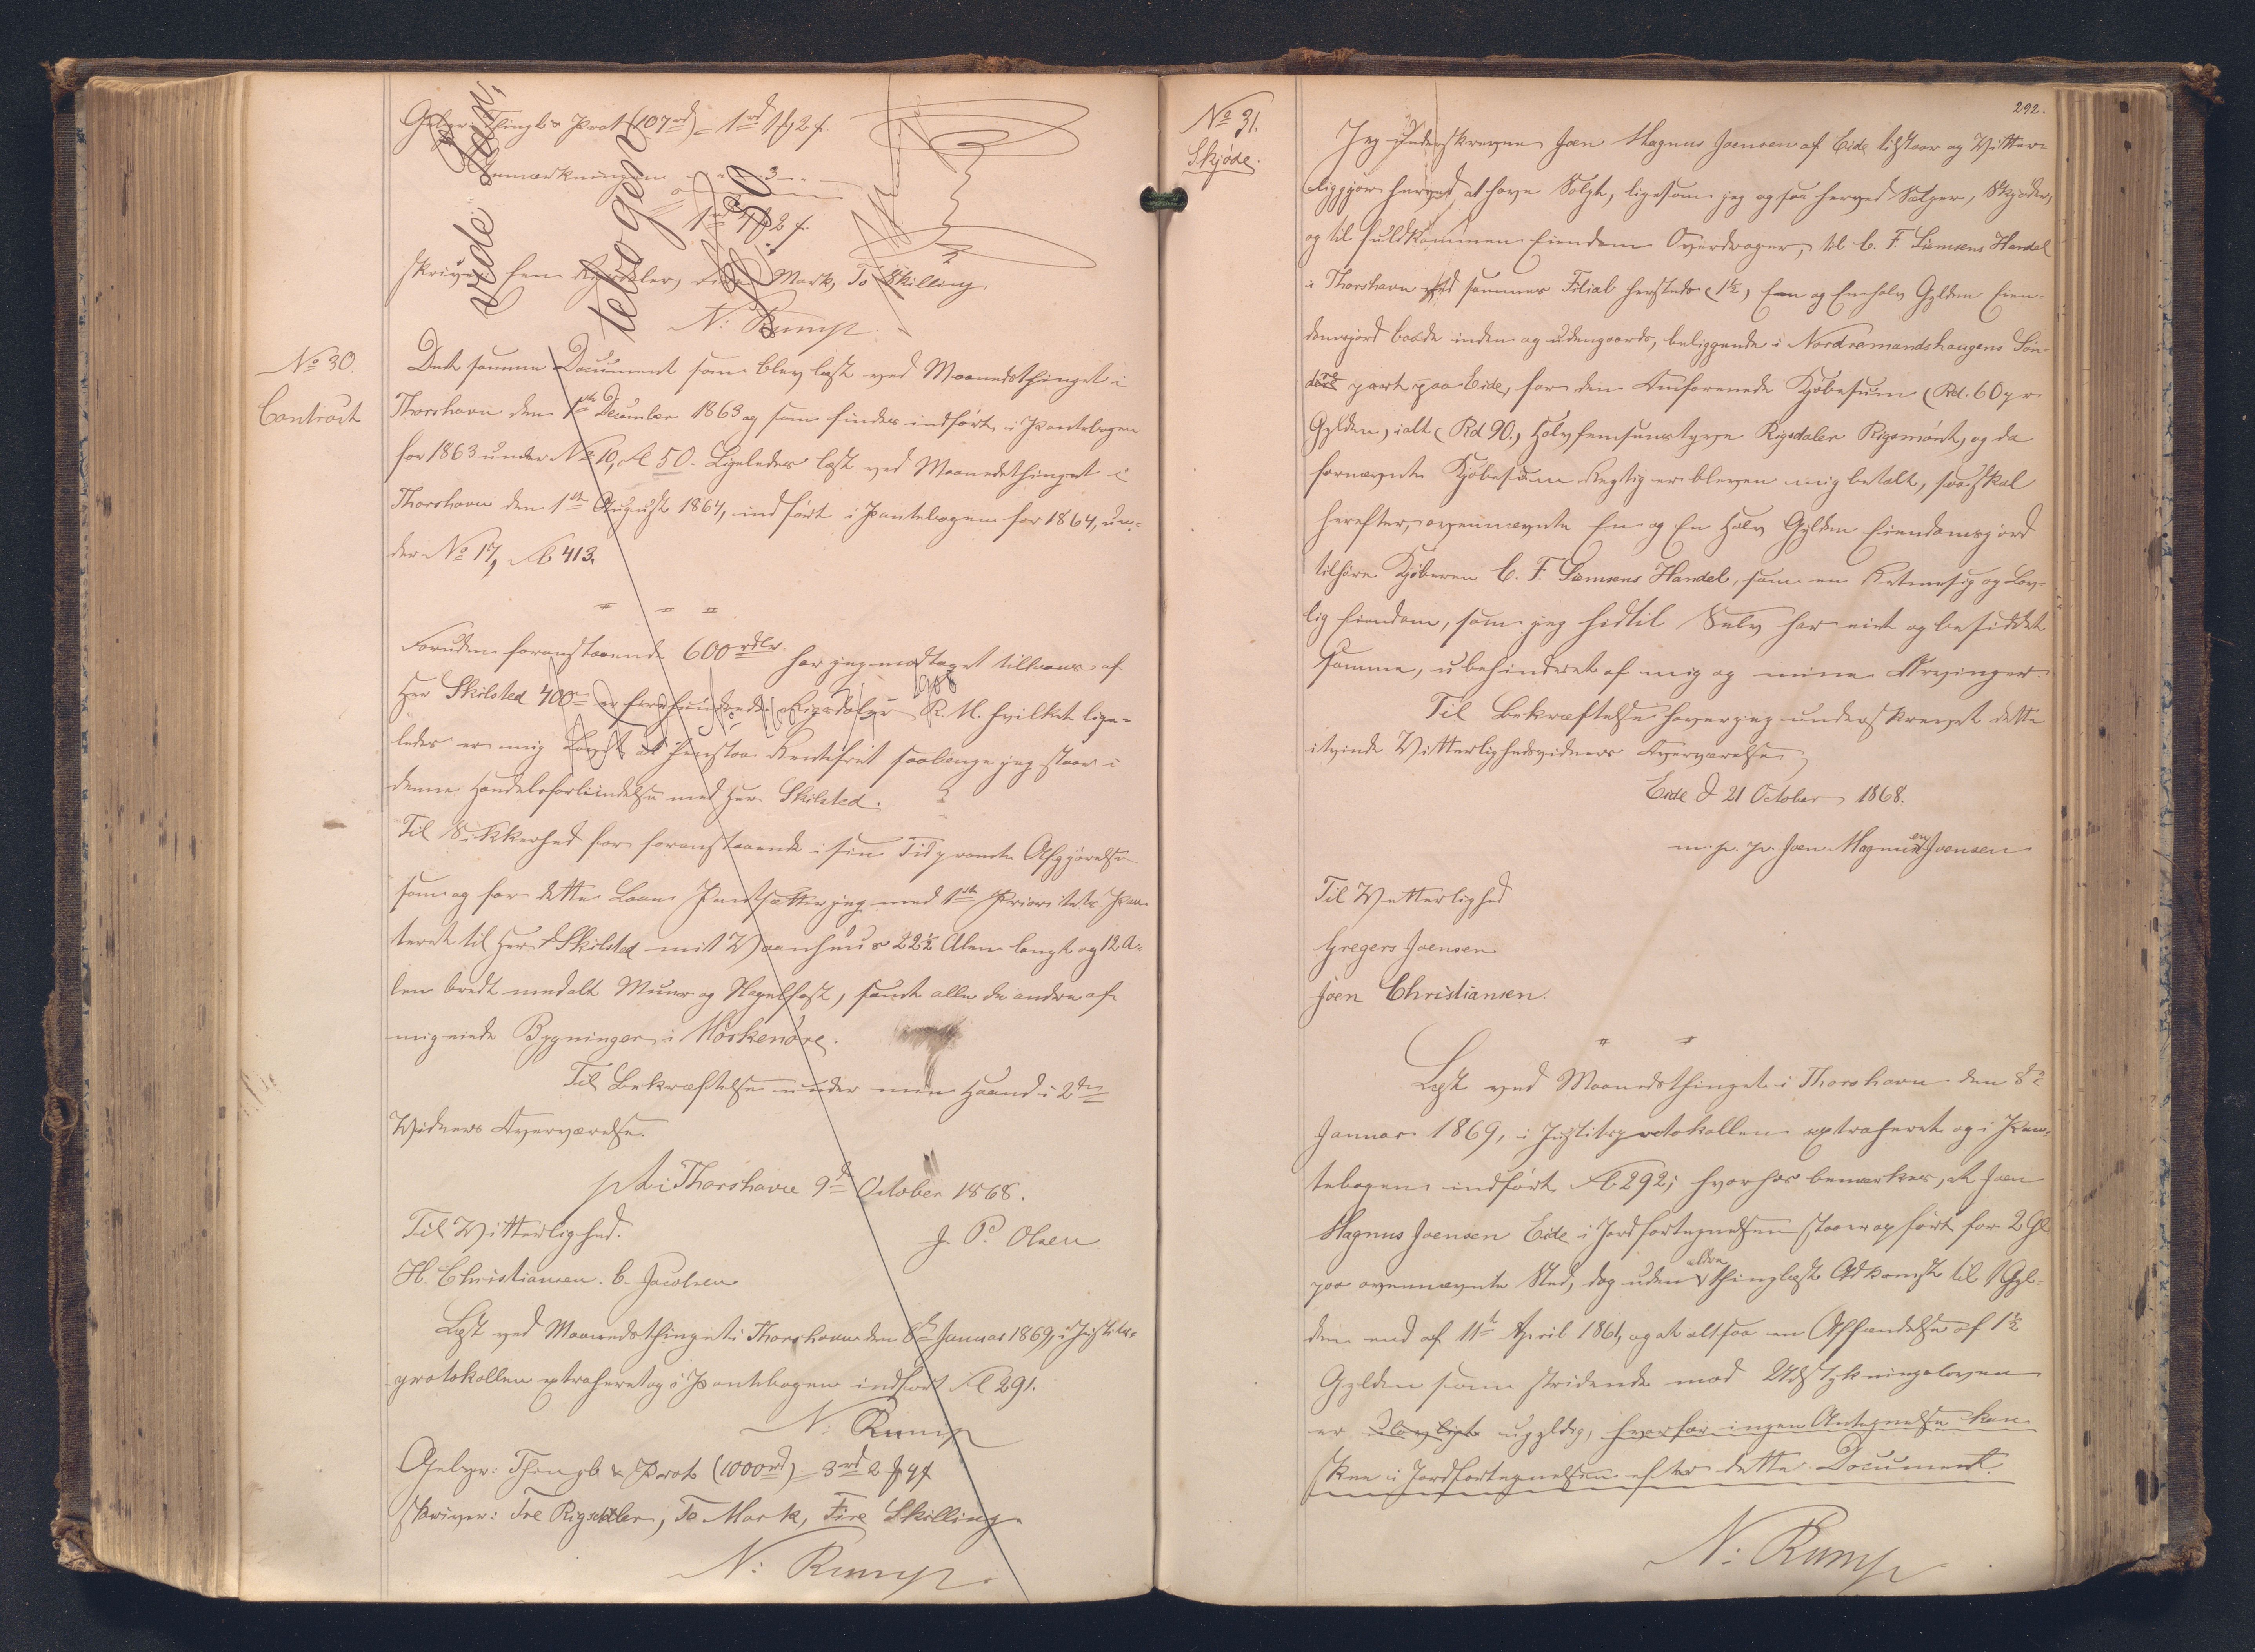 Gebyr: Thingl & Prot (107rd) = 1rd 1 2 s.
Anmærkningen " - 3 -
1rd 4 2 s.
skriver Een Rigsdaler, Mark, To Skilling
N: Rump.
No 30.
Contract
Det samme Document som blev læst ved Maanedsthinget i
Thorshavn den 1ste December 1863 og som findes indført i Pantebogen
for 1863 under No 10, Fol 50. Ligeledes læst ved Maanedsthinget i
Thorshavn den 1ste August 1864, indført i Pantebogen for 1864, un-
der No 17, Fol 413.
" " "
Foruden foranstaaende 600 rdlr. har jeg modtaget tillaans af
Herr Skilsted 400 er firehundrede Rigsdaler R.M. hvilket lige-
ledes er mig lovet at henstaa Rentefrit saalænge jeg staar i
denne Handelsforbindelse med Herr Skilsted.
Til Sikkerhed for foranstaaende i sin Tid promte Afgjørelse
som og for dette Laan Pantsætter jeg med 1ste Prioritets Pan-
teret til Herr Skilsted mit Vaanhuus 22½ Alen langt og 12 A-
len bredt medalt Muur og Nagelfast, samt alle de andre af
mig eiede Bygninger i Morskenøre.
Til Bekræftelse under min Haand i 2de
Vidners Overværelse.
pt i Thorshavn 9de October 1868.
Til Vitterlighed. J. P. Olsen
H. Christiansen. C. Jacobsen
Læst ved Maanedsthinget i Thorshavn den 8de Januar 1869, i Justits-
protokollen extraheret og i Pantebogen indført Fol 291.
N: Rump
Gebyr: Thingl & Prot (1000rd) = 3rd 2 4 s
skriver: Tre Rigsdaler, To Mark, Fire Skilling
N: Rump.
vide Pan,
tebogen
No 30
1908
292.
No 31.
Skjøde.
Jeg Underskrevne Joen Magnus Joensen af Eide tilstaar og Vitter-
liggjør herved at have Solgt, ligesom jeg og saa herved Sælger, Skjøder,
og til fuldkommen Eiendom Overdrager, til C. F. Siemsens Handel
i Thorshavn ved sammes Filial hersteds (1½) Een og Eenhalv Gylden Eien-
domsjord baade inden og udengaards, beliggende i Nordremandshaugens Søn-
dre part paa Eide, for den Omforenede Kjøbesum (Rd. 60 pr
Gylden) ialt (Rd 90.) Halvfemsinstyve Rigsdaler Rigsmønt, og da
fornævnte Kjøbesum Rigtig er bleven mig betalt, saa skal
herefter, ovennævnte En og En Halv Gylden Eiendomsjord
tilhøre Kjøberen C. F. Siemsens Handel, som en Retmæsig og Lov-
lig Eiendom, som jeg hidtil Selv har eiet og besiddet
samme, ubehindret af mig og mine Arvinger.
Til Bekræftelse haver jeg underskrevet dette
i tvende Vitterlighedsvidners Overværelse
Eide d 21 October 1868.
m. p. P. Joen Magnusen Joensen
Til Vitterlighed
Gregers Joensen
Joen Christiansen.
" "
Læst ved Maanedsthinget i Thorshavn den 8de
Januar 1869, i Justitsprotokollen extraheret og i Pan-
tebogen indført Fol 292; hvorhos bemærkes, at Joen
Magnus Joensen Eide i Jordfortegnelsen staar opført for 2 Gl
paa ovennævnte Sted, dog uden ældre thinglæst Adkomst til 1 Gyl-
den end af 11te April 1861, og at altsaa en Afhændelse af 1½
Gylden som stridende mod Udstykningsloven
er ulovligt ugyldig, hvorfor ingen Antegnelse kan
skee i Jordfortegnelsen efter dette Document.
N: Rump